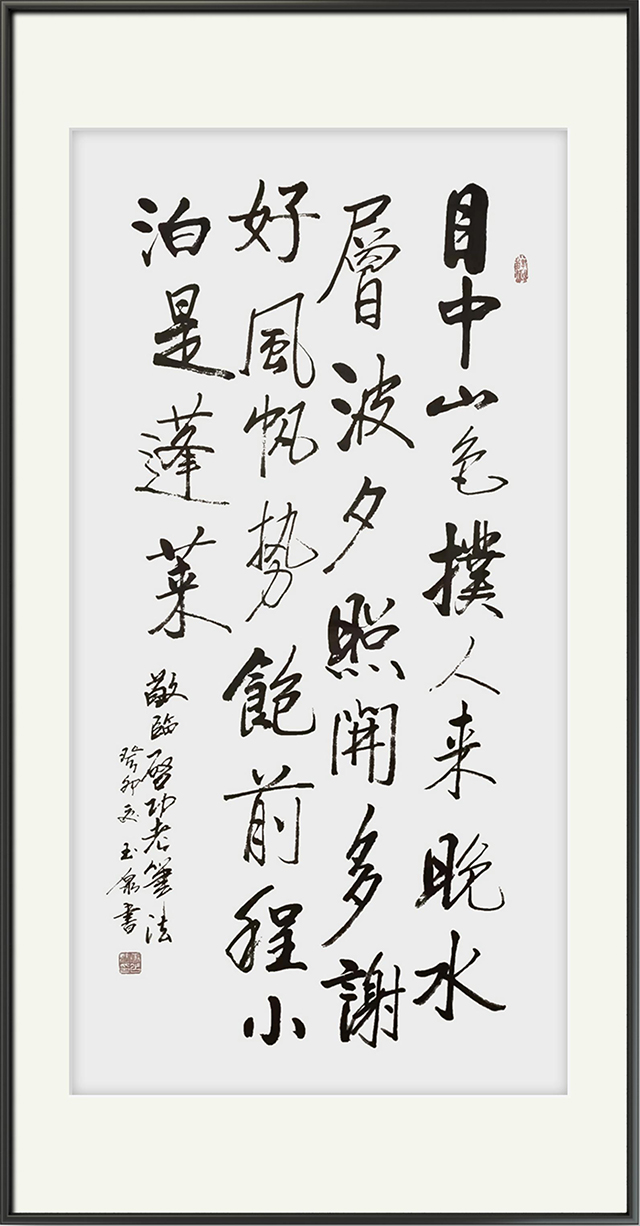 目中山色撲人来晚水
層波夕照開多謝
好風帆势飽前程小
泊是蓬莱
敬臨啓功老筆法
癸卯夏玉泉書